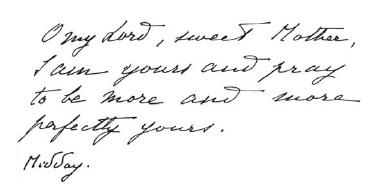 O my Lord, sweet Mother,
I am yours and pray
to be more and more
perfectly yours.
Midday.